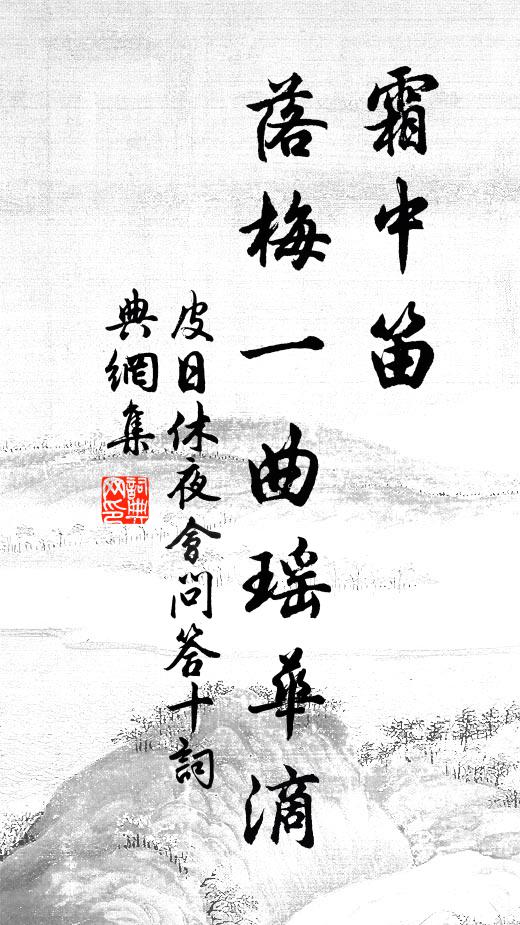 霜中笛
落梅一曲瑶華滴
皮日休夜會問答十詞
典網集
詞典網印